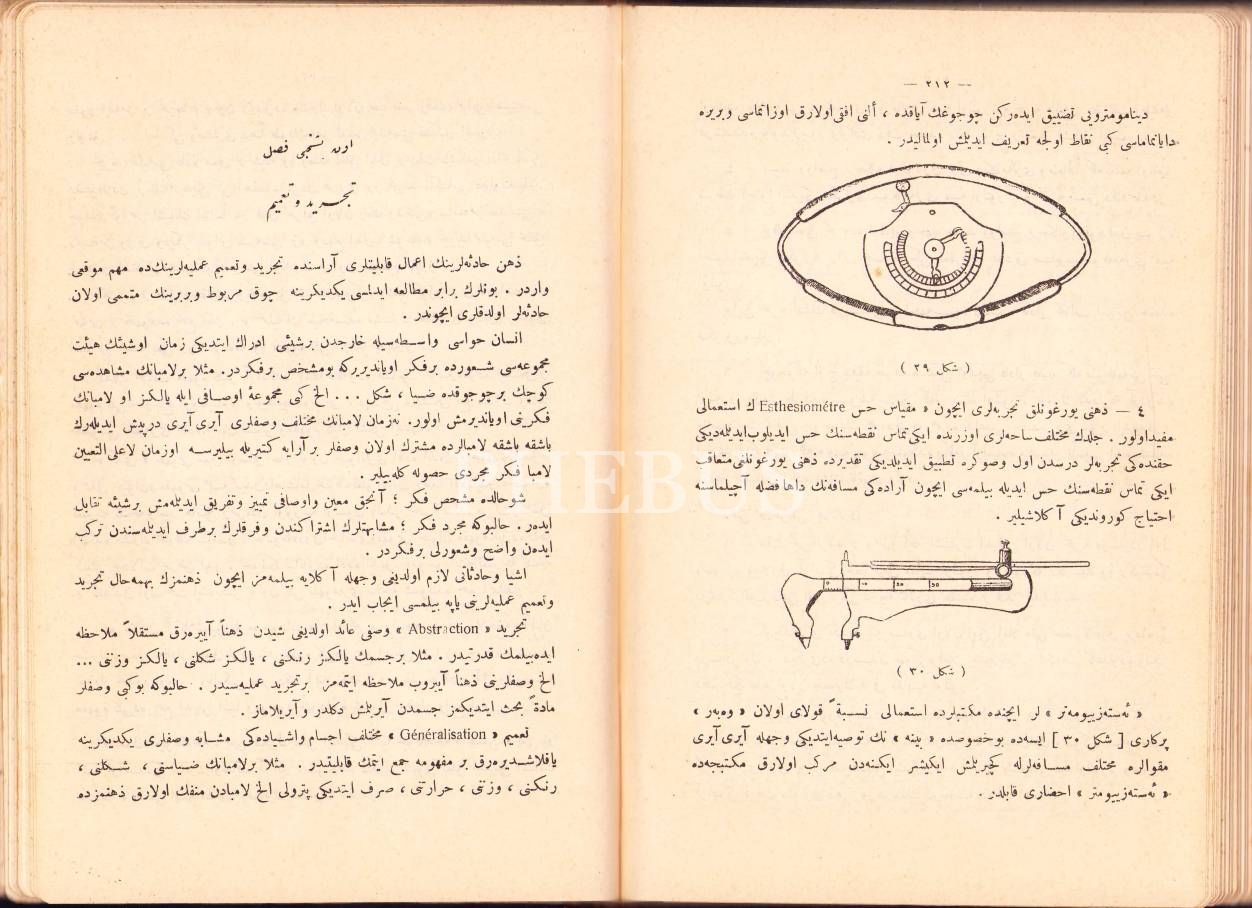 — ٢١٢ —
دینامومترویی تضییق ایده‌رکن چوجوغك آیاقده ، ألنی افتی اولارق اوزاتماسی ویریره
دایاتماماسی کبی نقاط اولجه تعریف ایدیلمش اولمالیدر .
( شکل ٢٩ )
٤ — ذهنی یورغونلق تجربه‌لری ایچون « مقیاس حس Esthesiométre ك استعمالی
مفیداولور . جلدك مختلف ساحه‌لری اوزرنده ایکی تماس نقطه‌سنك حس ایدیلوب ایدیله‌دیکی
حقنده‌کی تجربه‌لر درسدن اول وصوکره تطبیق ایدیلدیکی تقدیرده ذهنی یورغونلغی متعاقب
ایکی تماس نقطه‌سنك حس ایدیله بیلمه‌سی ایچون آراده‌کی مسافه‌نك داها فضله آچیلماسنه
احتیاج کوروندیکی آ کلاشیلیر .
( شکل ٣٠ )
« ئه‌سته‌زییومه‌تر » لر ایچنده مکتبلرده استعمالی نسبةً قولای اولان « وه‌بەر »
پرکاری [ شکل ٣٠ ] ایسه‌ده بوخصوصده « بینه » نك توصیه‌ایتدیکی وجهله آیری آیری
مقوالره مختلف مسافه‌لرله کچیریلمش ایکیشر ایکنه‌دن مرکب اولارق مکتبجه‌ده
« ئه‌سته‌زییومتر » احضاری قابلدر .
اون بشنجی فصل
تجرید و تعمیم
ذهن حادثه‌لرینك اعمال قابلیتلری آراسنده تجرید وتعمیم عملیه‌لرینك‌ده مهم موقعی
واردر . بونلرك برابر مطالعه ایدلسی یکدیکرینه چوق مربوط وبربرینك متممی اولان
حادثه‌لر اولدقلری ایچوندر .
انسان حواسی واسطه‌سیله خارجدن برشیئی ادراك ایتدیکی زمان اوشیئك هیئت
مجموعه‌سی شعورده برفکر اویاندیریرکه بومشخص برفکردر. مثلا برلامبانك مشاهده‌سی
کوچك برچوجوقده ضیا ، شکل ... الخ کبی مجموعهٔ اوصافی ایله یالکز او لامبانك
فکرینی اویاندیرمش اولور. نه‌زمان لامبانك مختلف وصفلری آیری آیری درپیش ایدیله‌رك
باشقه باشقه لامبالرده مشترك اولان وصفلر بر آرایه کتیریله بیلیرسه اوزمان لاعلی‌التعیین
لامبا فکر مجردی حصوله کله‌بیلیر .
شوحالده مشخص فکر ؛ آنجق معین واوصافی تمییز وتفریق ایدیلمه‌مش برشیئه تقابل
ایدەر . حالبوکه مجرد فکر ؛ مشابهتلرك اشتراکندن وفرقلرك برطرف ایدیلمه‌سندن ترکب
ایدەن واضح وشعورلی برفکردر .
اشیا وحادثاتی لازم اولدیغی وجهله آ کلایه بیلمه‌مز ایچون ذهنمزك بهمه‌حال تجرید
وتعمیم عملیه‌لرینی یاپه بیلمسی ایجاب ایدر .
تجرید « Abstraction » وصفی عائد اولدیغی شیدن ذهناً آییره‌رق مستقلاً ملاحظه
ایده‌بیلمك قدرتیدر . مثلا برجسمك یالکز رنکنی ، یالکز شکلنی ، یالکز وزنتی ...
الخ وصفلرینی ذهناً آییروب ملاحظه ایتمه‌مز برتجرید عملیه‌سیدر . حالبوکه بوکبی وصفلر
مادةً بحث ایتدیکمز جسمدن آیریلمش دکلدر وآیریلاماز .
تعمیم « Généralisation » مختلف اجسام واشیاده‌کی مشابه وصفلری یکدیکرینه
یاقلاشدیره‌رق بر مفهومه جمع ایتمك قابلیتیدر . مثلا برلامبانك ضیاسنی ، شکلنی ،
رنکنی ، وزتی ، حرارتی ، صرف ایتدیکی پترولی الخ لامبادن منفك اولارق ذهنمزده
PHEBUS